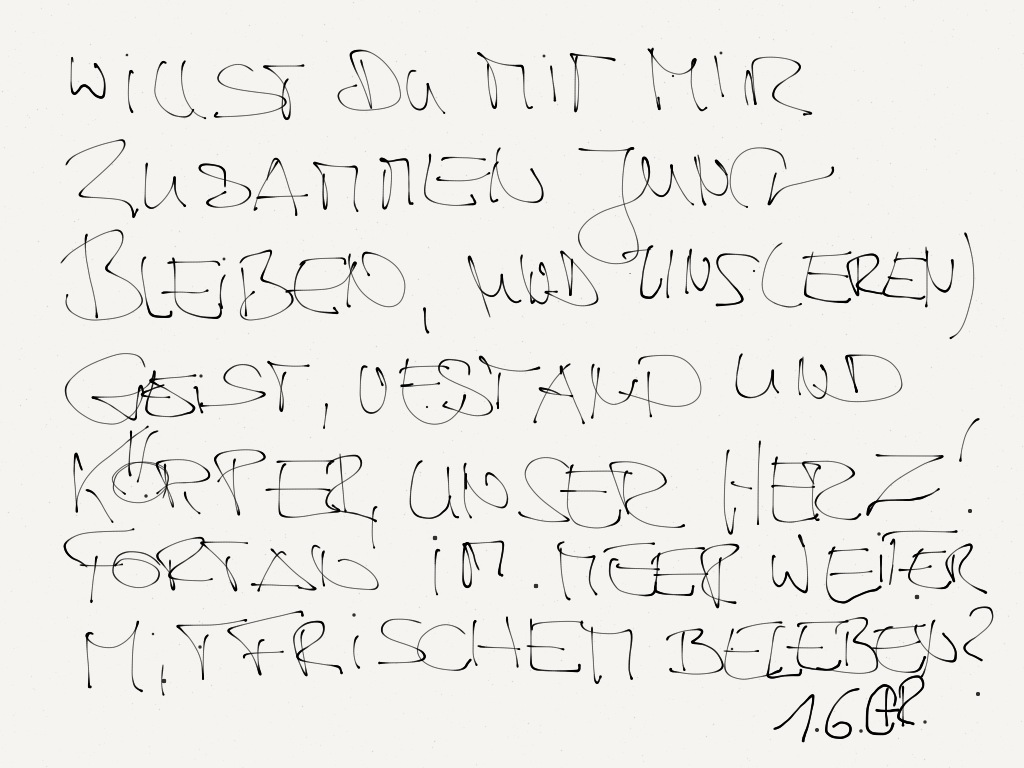 WILLST DU MIT MIR
ZUSAMMEN JUNG
BLEIBEN, UND UNS(EREN)
GEIST, VESTAND UND
KÖRPER, UNSER HERZ!
FORTAN IM MEER WEITER
MIT FRISCHEM BELEBEN?
1.6.